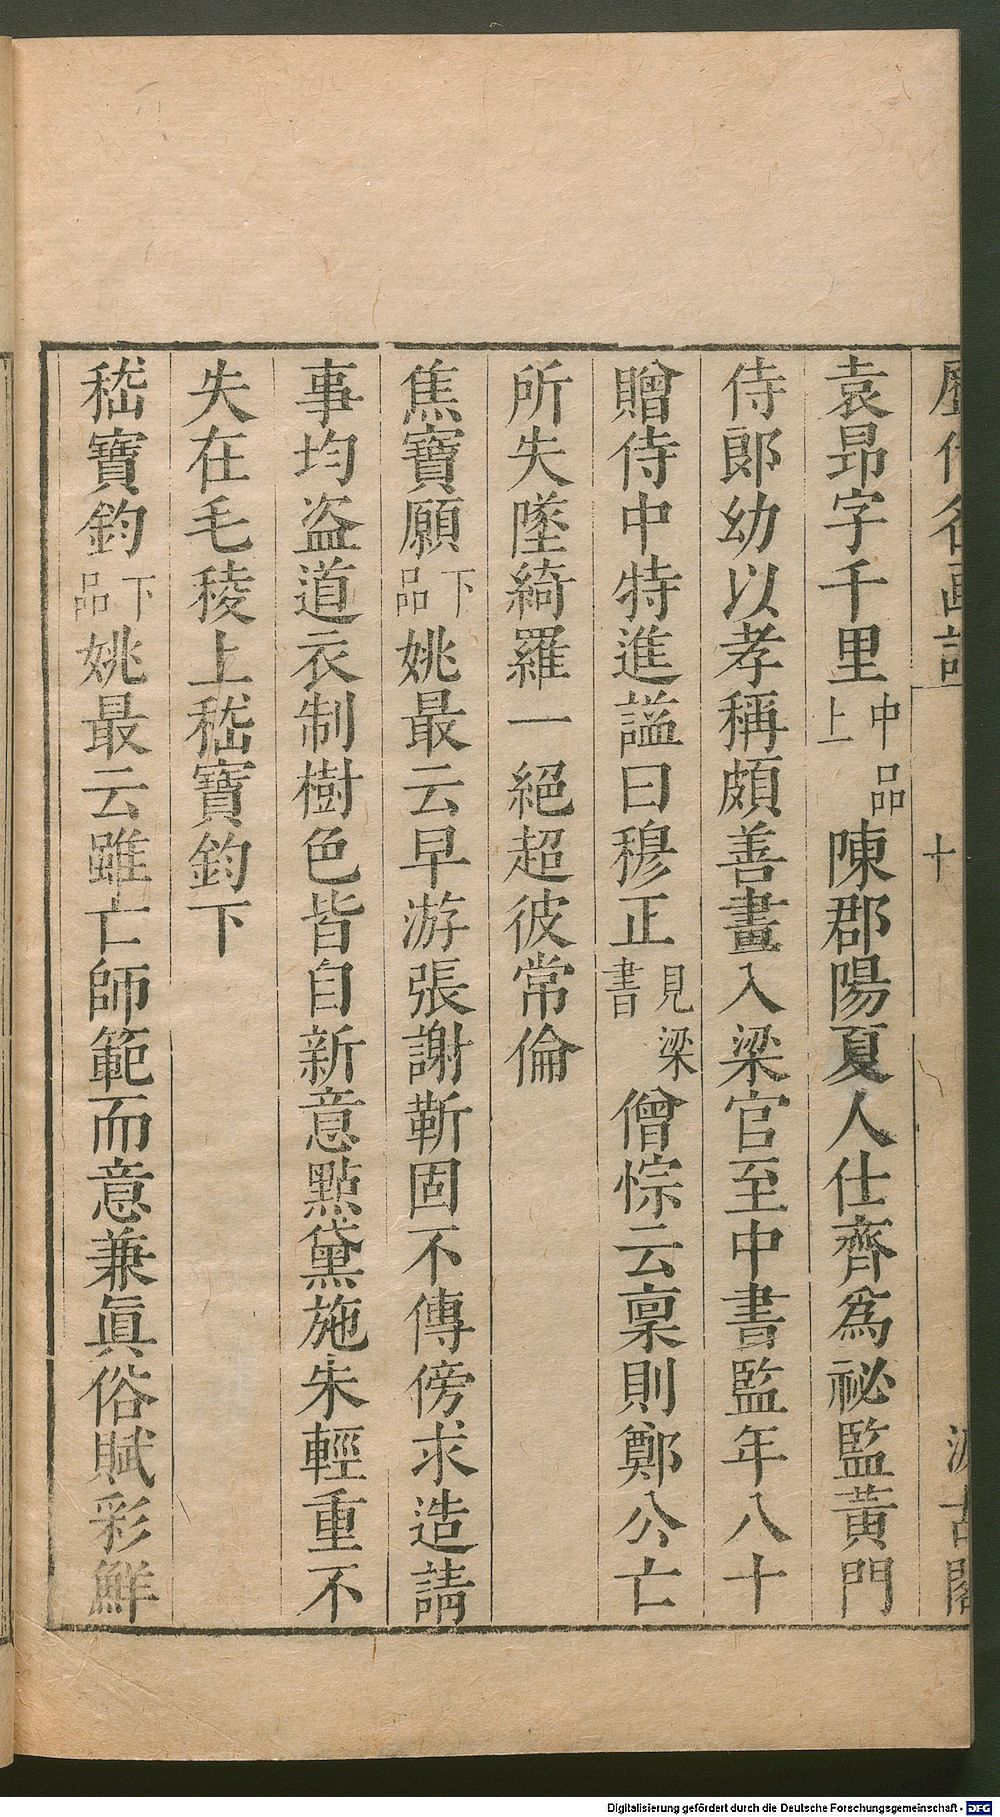 歷代名畫記 十 汲古閣
袁昂字千里中品上陳郡陽夏人仕齊爲祕監黃門
侍郎幼以孝稱頗善畫入梁官至中書監年八十
贈侍中特進謚曰穆正見梁書僧悰云稟則鄭公亡
所失墜綺羅一絕超彼常倫
焦寶願下品姚最云早游張謝靳固不傳傍求造請
事均盗道衣制樹色皆自新意點黛施朱輕重不
失在毛稜上嵇寶鈞下
嵇寶鈞下品姚最云雖亡師範而意兼眞俗賦彩鮮
Digitalisierung gefördert durch die Deutsche Forschungsgemeinschaft - DFG